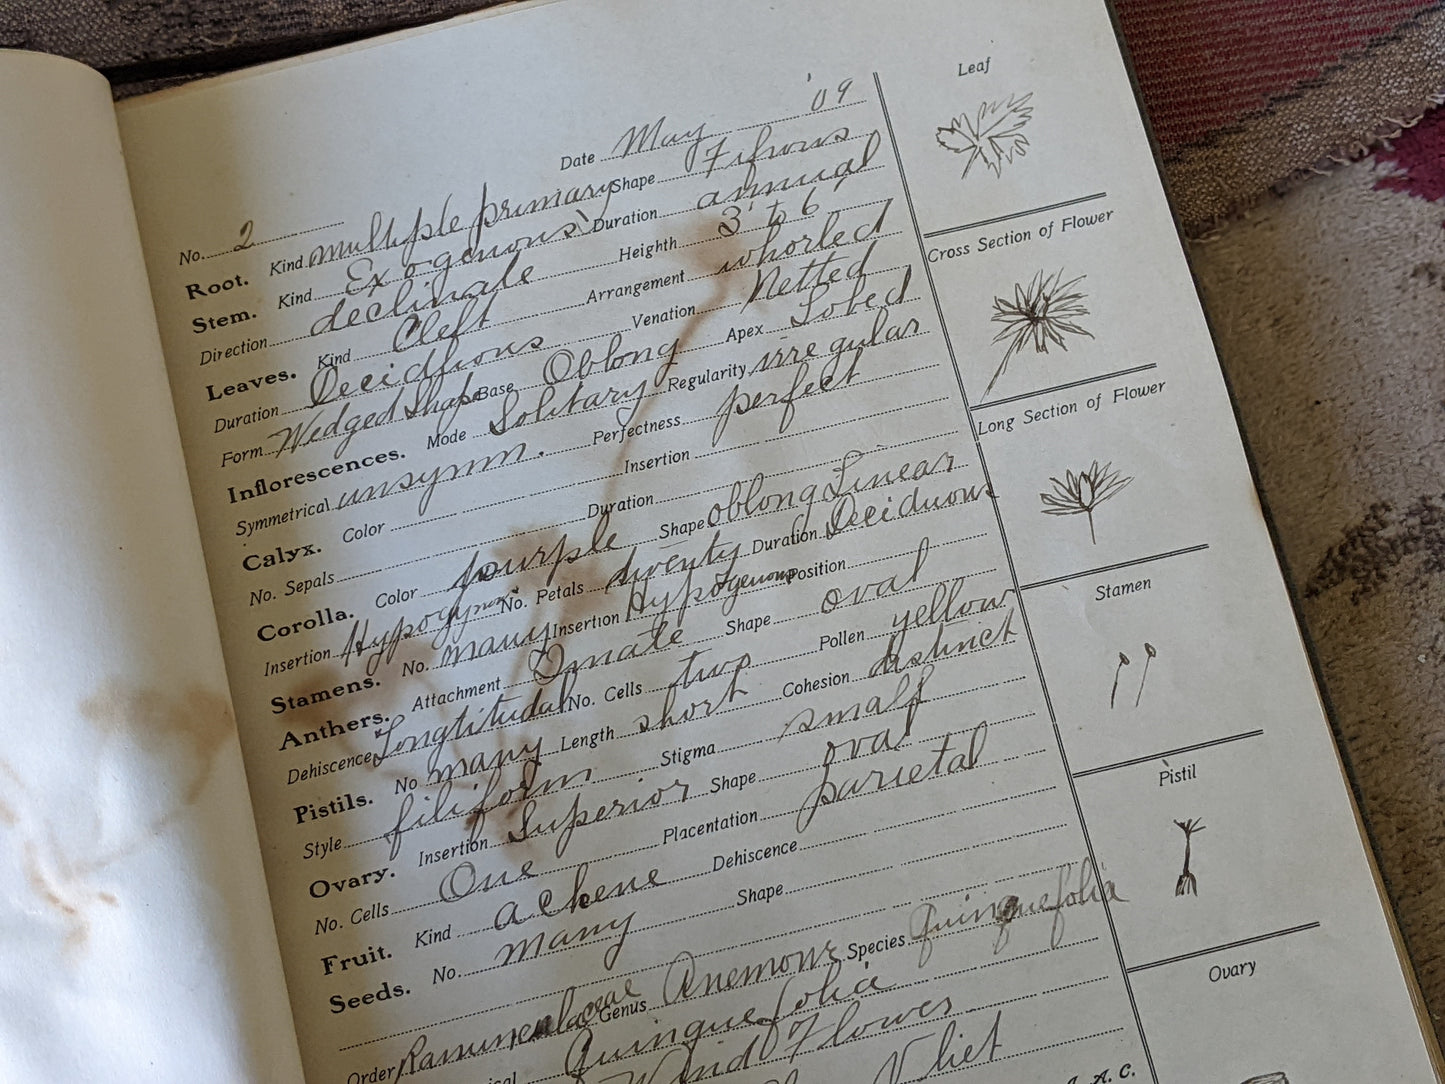 Date May '09
No. 2
Root. Kind multiple primary Shape Fifrous
Stem. Kind Exogenous Duration annual
Direction declinate Heighth 3" to 6"
Leaves. Kind Cleft Arrangement whorled
Duration Deciduous Venation Netted
Form Wedged Shape Base Oblong Apex Lobed
Inflorescences. Mode Solitary Regularity irregular
Symmetrical unsymm. Perfectness perfect
Calyx. Color Insertion
No. Sepals Duration
Corolla. Color purple Shape oblong Linear
Insertion Hypogynous No. Petals twenty Duration Deciduous
Stamens. No. many Insertion Hypogenous Position
Anthers. Attachment Innate Shape oval
Dehiscence Longtitudal No. Cells two Pollen yellow
Pistils. No many Length short Cohesion distinct
Style filiform Stigma small
Ovary. Insertion Superior Shape oval
No. Cells One Placentation parietal
Fruit. Kind achene Dehiscence
Seeds. No. many Shape
Order Ranunculaceae Genus Anemone Species Quinquefolia
Quinquefolia
Wind Flower
Vliet
A. C.
Leaf
Cross Section of Flower
Long Section of Flower
Stamen
Pistil
Ovary